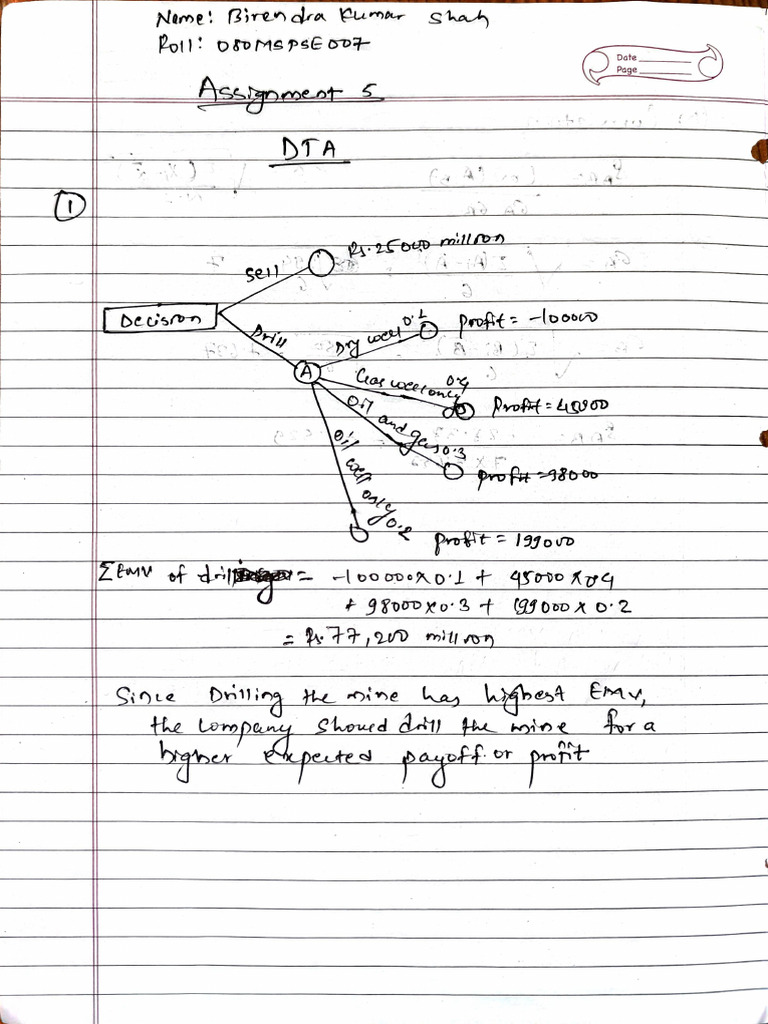 Name: Birendra Kumar Shah
Roll: 080MSPSE007
Date
Page
Assignment 5
DTA
1
Sell
Rs.25000 million
Decision
Drill
A
Dry well 0.1
profit = -100000
Gas well only 0.4
Profit = 45000
Oil and gas 0.3
profit = 98000
Oil well only 0.2
profit = 199000
ΣEMV of drilling = -100000x0.1 + 45000x0.4
+ 98000x0.3 + 199000x0.2
= Rs.77,200 million
Since Drilling the mine has highest EMV,
the company should drill the mine for a
higher expected payoff or profit